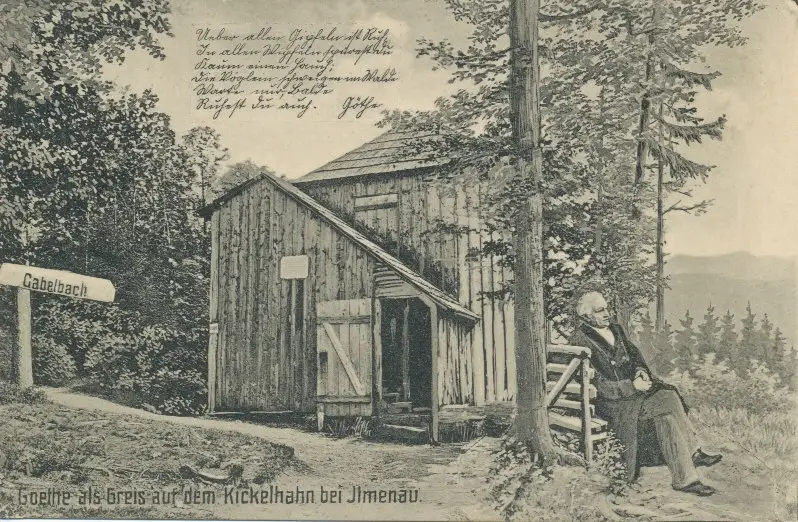 Ueber allen Gipfeln ist Ruh,
In allen Wipfeln spürest du
Kaum einen Hauch;
Die Vöglein schweigen im Walde
Warte nur, Balde
Ruhest du auch. Göthe
Gabelbach
Goethe als Greis auf dem Kickelhahn bei Jlmenau.